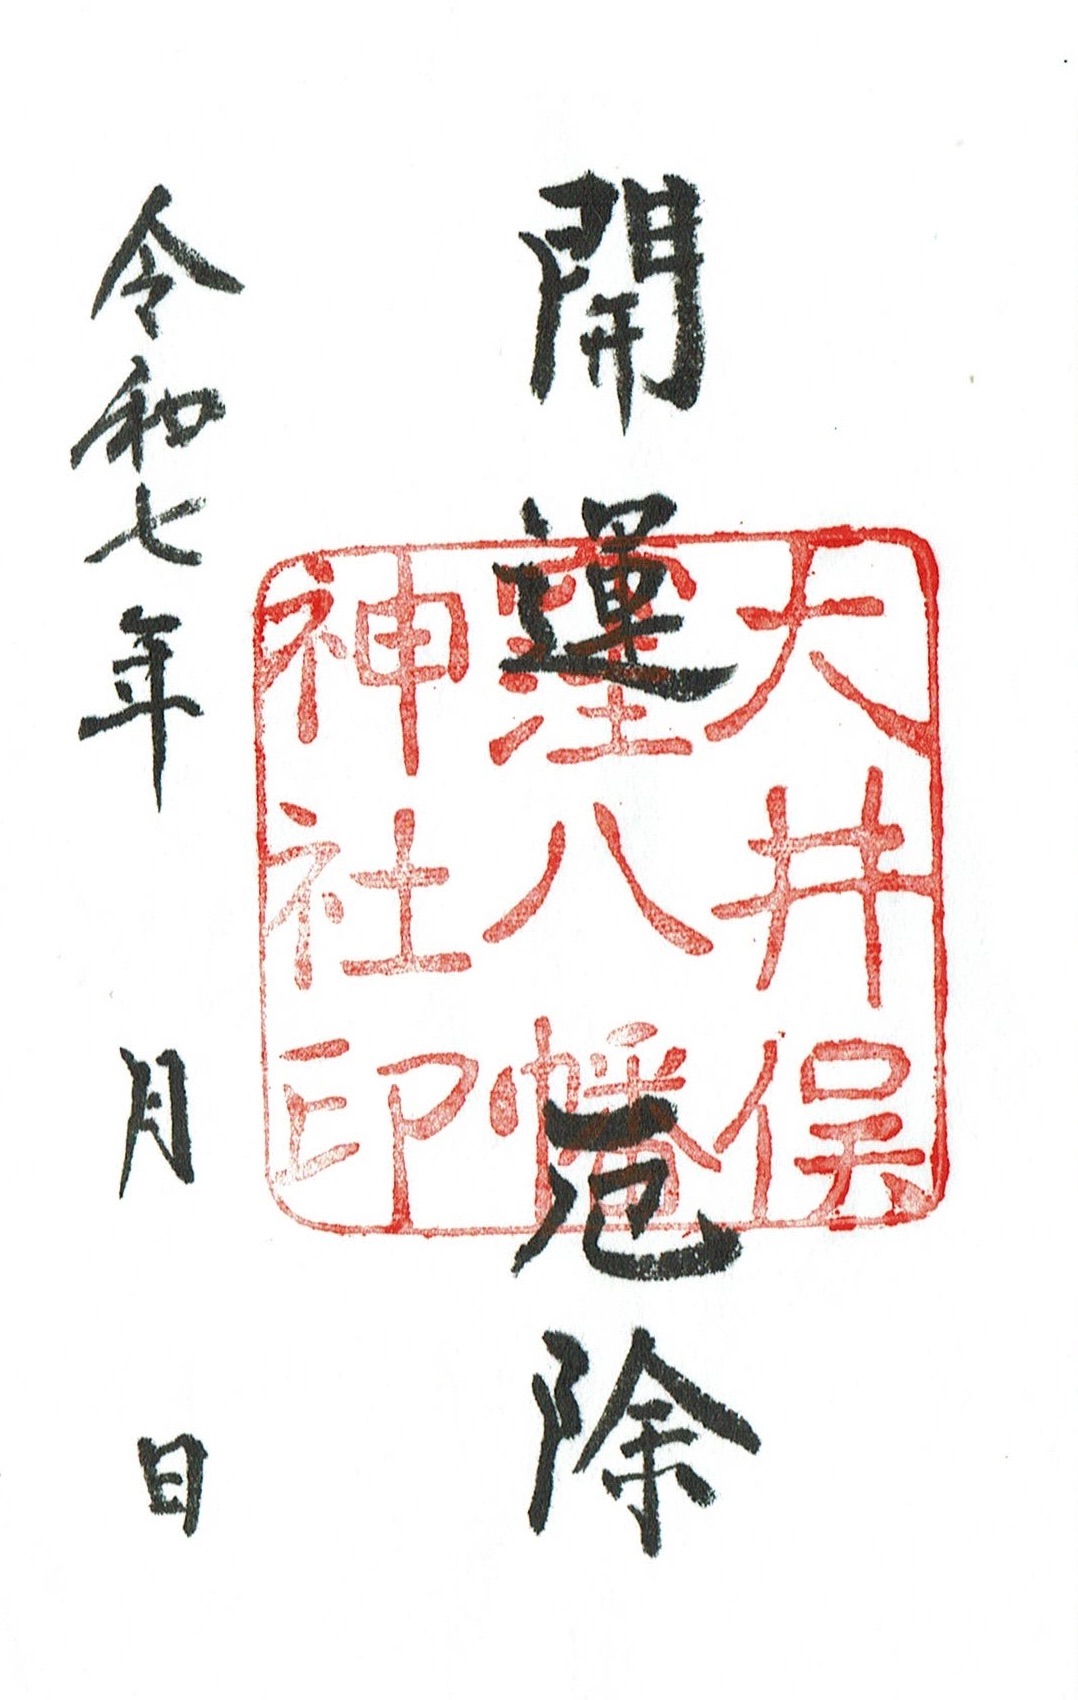 開運厄除
大井俣
窪八幡
神社印
令和七年 月 日